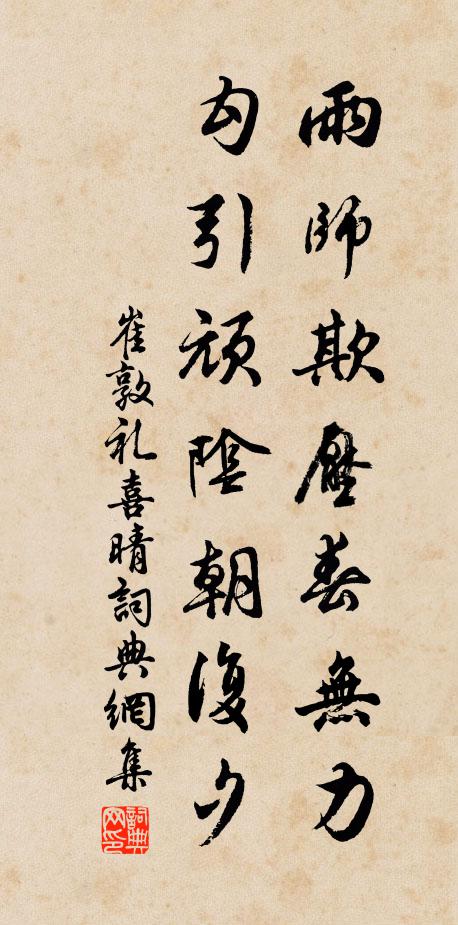 雨師欺壓春無力
勾引頑陰朝復夕
崔敦礼喜晴詞典網集
詞典網印